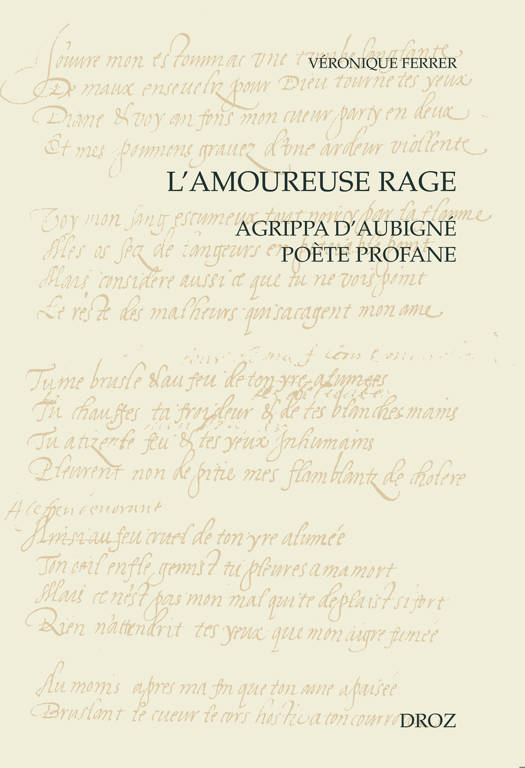 VÉRONIQUE FERRER
J'ouvre mon estommac une tumbe sanglante
De maux enseveliz pour Dieu tourne tes yeux
Diane & voy au fons mon cueur party en deux
Et mes poumons gravez d'une ardeur viollente
L'AMOUREUSE RAGE
Voy mon sang escumeux tout noircy par la flamme
AGRIPPA D'AUBIGNÉ
Mes os secz de langeurs en
POÈTE PROFANE
Mais considere aussi ce que tu ne vois point
Le reste des malheurs qui sacagent mon ame
Tu me brusle & au feu de ton yre alumees
Tu chauffes ta froideur & de tes blanches mains
Tu atize le feu & tes yeux Inhumains
Pleurent non de pitie mes flamblantz de cholere
Ainsi au feu cruel de ton yre alumée
Ton oeil enfle gemist tu pleures a ma mort
Mais ce n'est pas mon mal qui te deplaist si fort
Rien n'attendrit tes yeux que mon aigre fumée
Au moins apres ma fin que ton ame apaisée
Bruslant le cueur le cors hostie a ton courro
DROZ